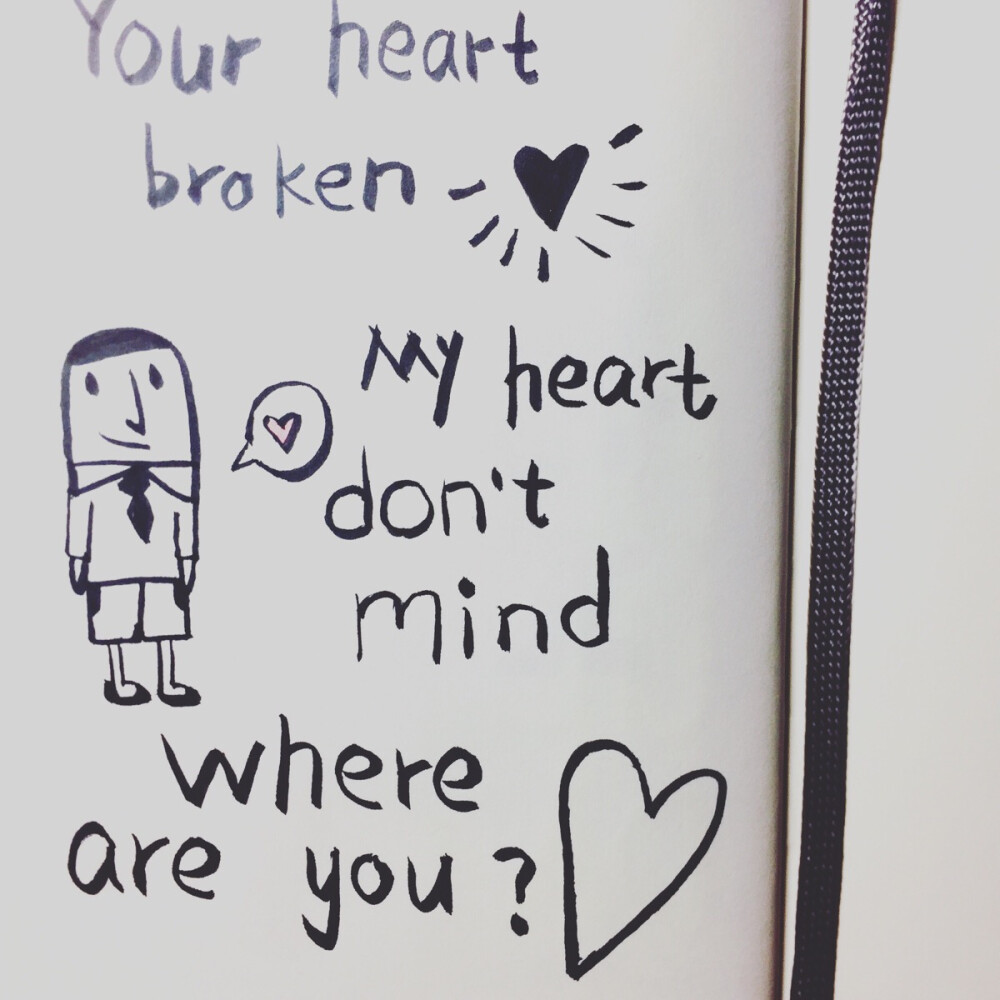 Your heart
broken
My heart
don't
mind
where
are you?